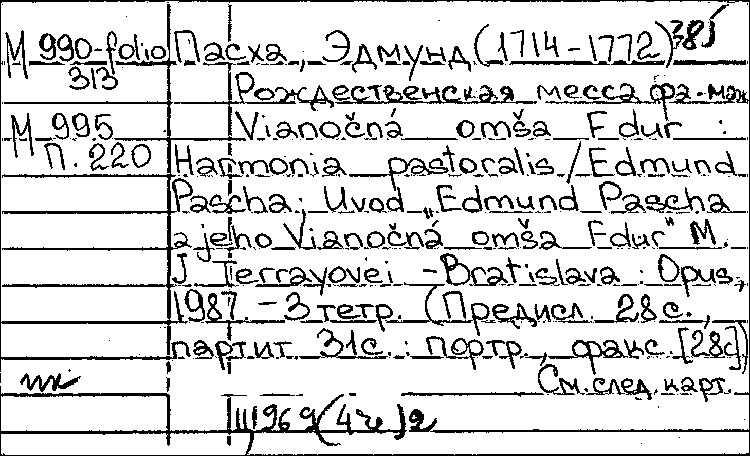 М 990-folio Пасха, Эдмунд (1714-1772)
313
Рождественская месса фа-маж
М 995 Vianočná omša F dur :
П. 220
Harmonia pastoralis / Edmund
Pascha; Uvod „Edmund Pascha
a jeho Vianočná omša F dur" M.
J Terrayovei - Bratislava : Opus,
1987. - 3 тетр. (Предисл. 28 с.,
партит. 31с. : портр., факс. [28с])
См. след. карт.